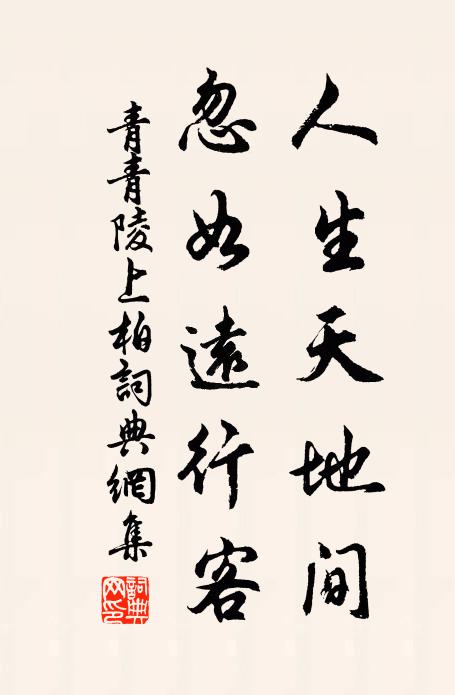 人生天地間
忽如遠行客
青青陵上柏詞典網集
詞典
網印